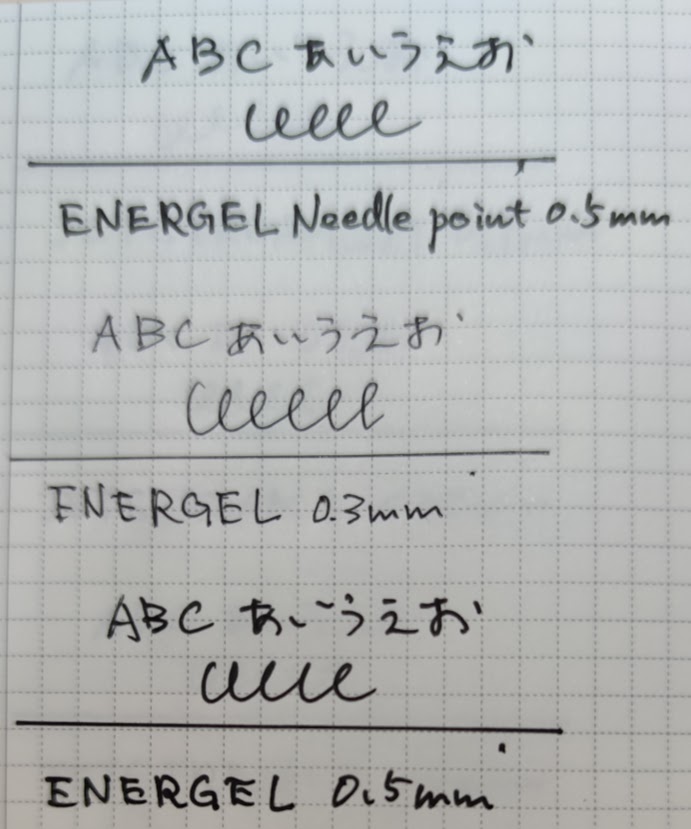 ABC あいうえお
ENERGEL Needle point 0.5mm
ABC あいうえお
ENERGEL 0.3mm
ABC あいうえお
ENERGEL 0.5mm